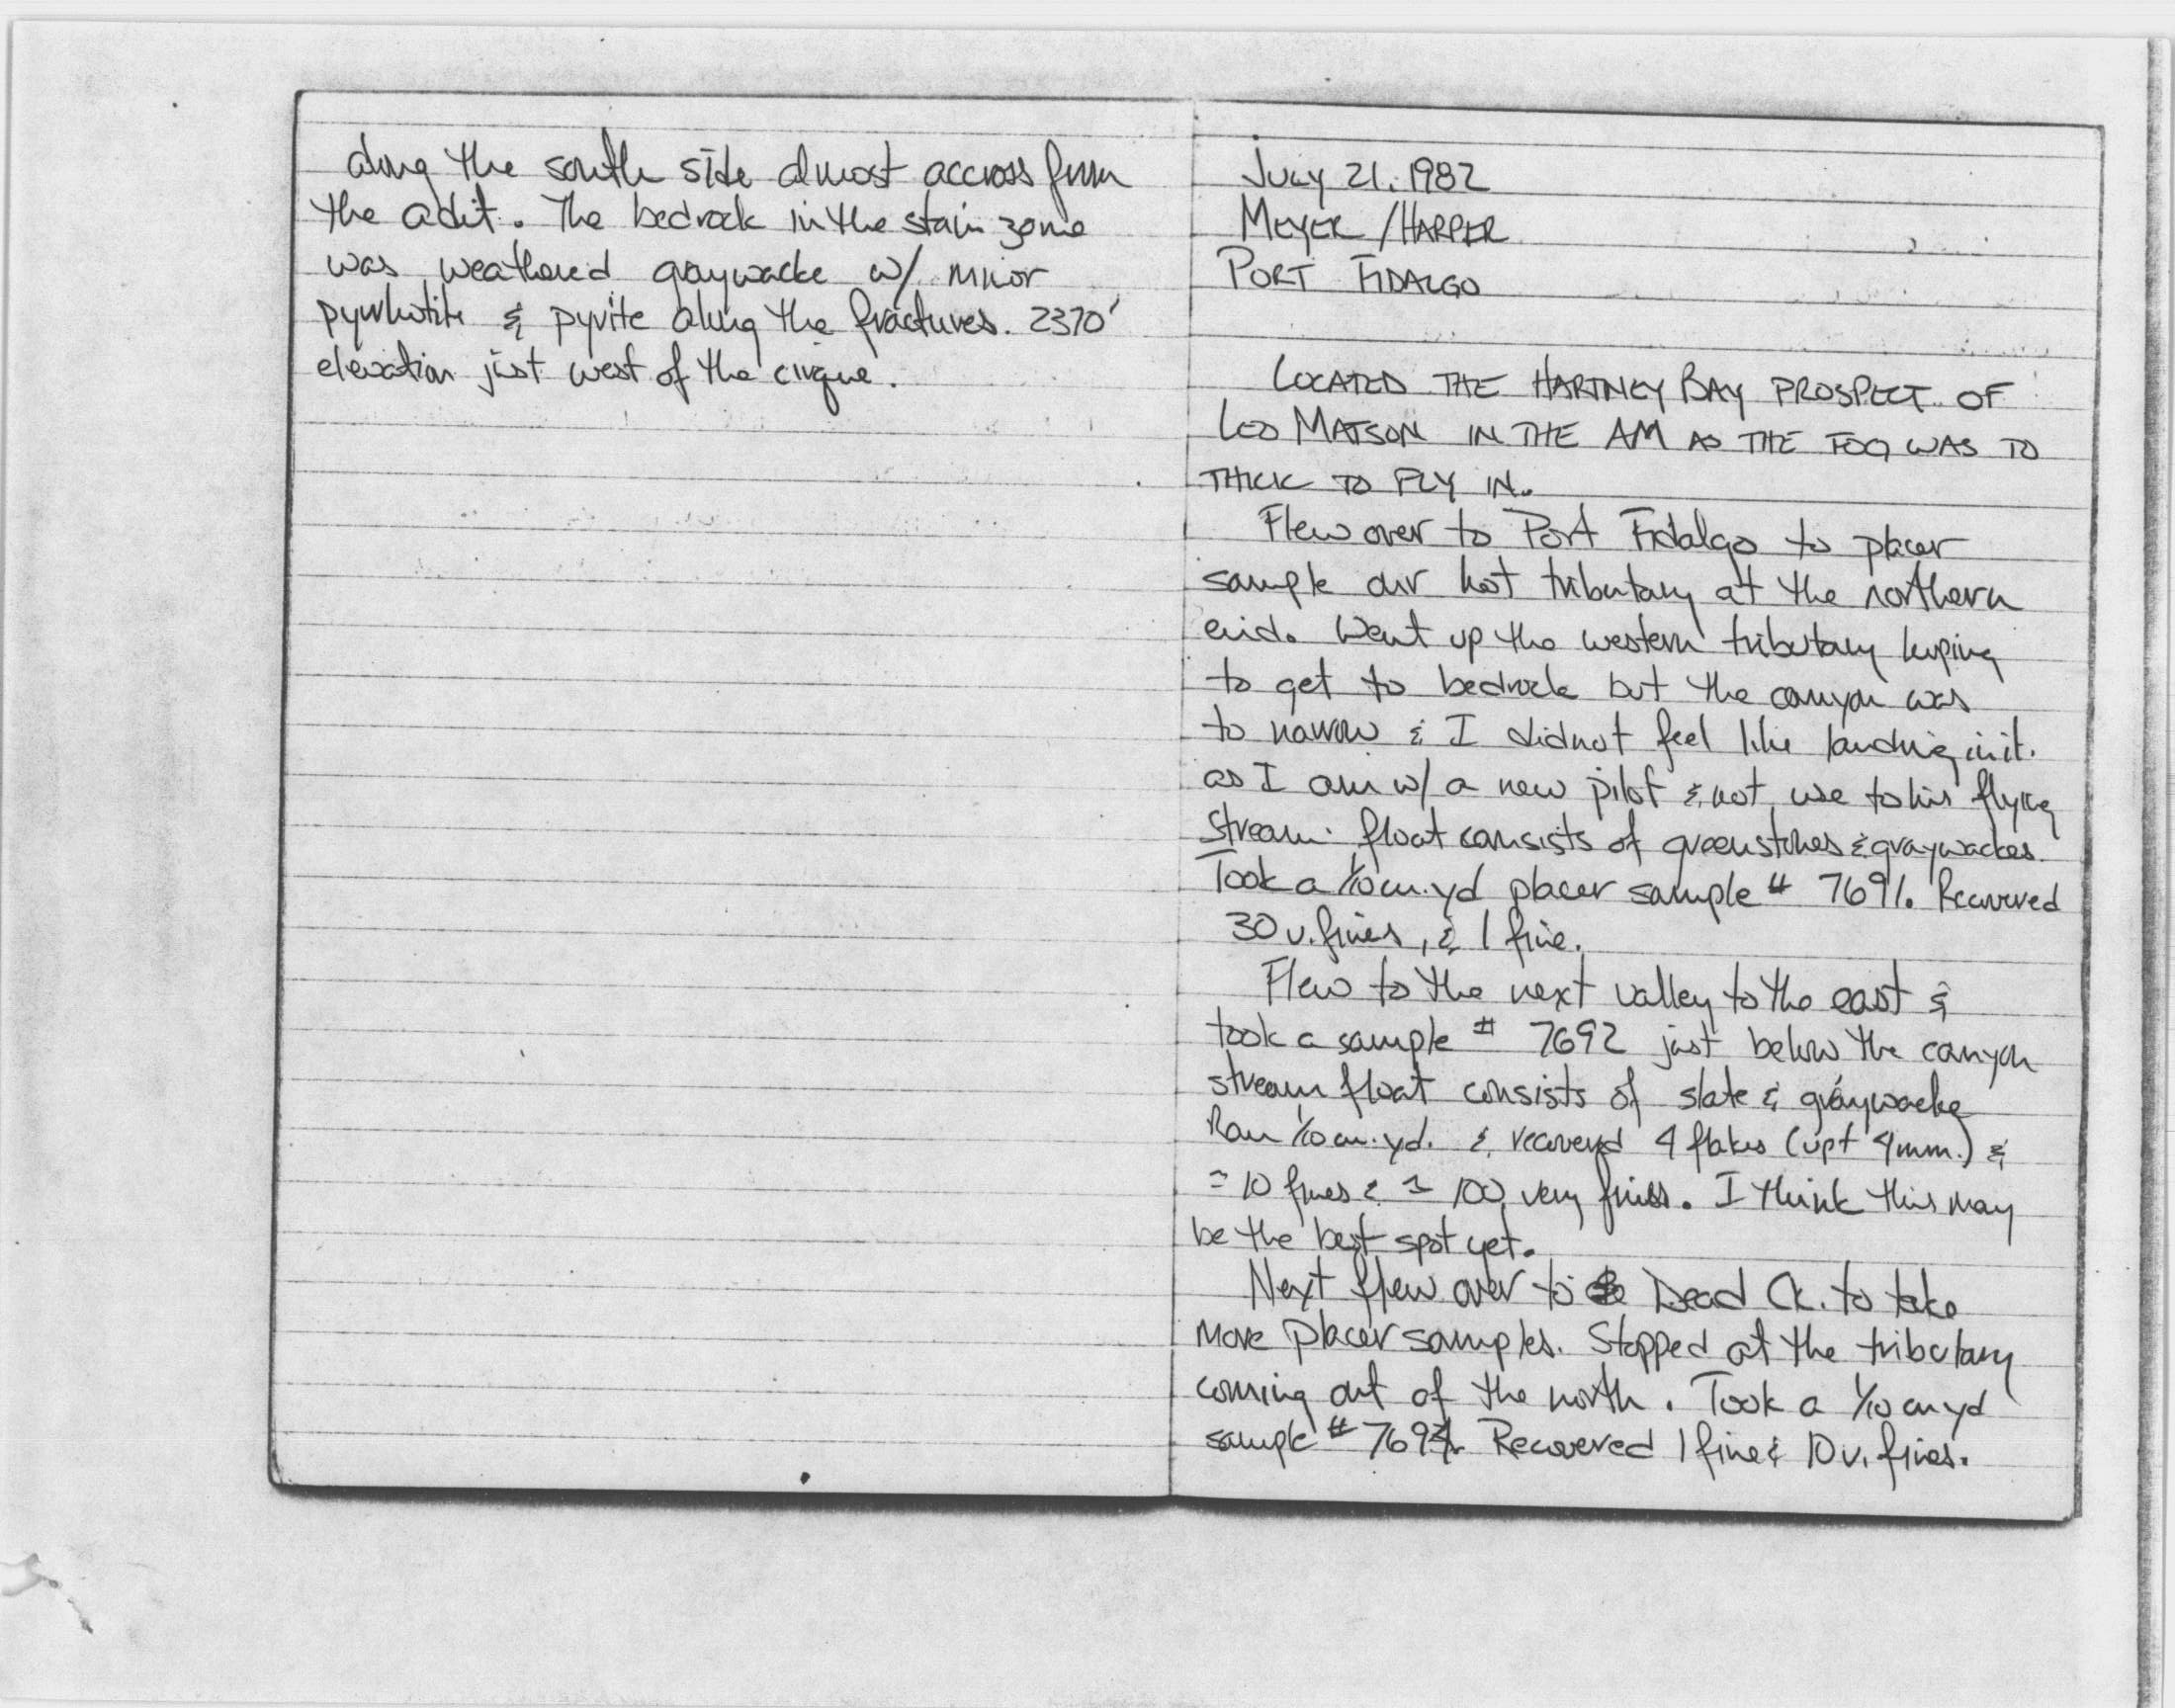 along the south side almost accross from
the adit. The bedrock in the stain zone
was weathered graywacke w/ minor
pyrrhotite & pyrite along the fractures. 2370'
elevation just west of the cirque.
JULY 21, 1982
MEYER / HARPER
PORT FIDALGO
LOCATED THE HARTNEY BAY PROSPECT OF
LEO MATSON IN THE AM AS THE FOG WAS TO
THICK TO FLY IN.
Flew over to Port Fidalgo to placer
sample our hot tributary at the northern
end. Went up the western tributary hoping
to get to bedrock but the canyon was
to narrow & I did not feel like landing in it.
as I am w/ a new pilot & not use to his flying
Stream float consists of greenstones & graywackes.
Took a 1/10 cu. yd placer sample # 7691. Recovered
30 v. fines, & 1 fine.
Flew to the next valley to the east &
took a sample # 7692 just below the canyon
stream float consists of slate & graywacke
Ran 1/10 cu. yd. & recoverd 4 flakes (upt 4mm.) &
≈ 10 fines & ≈ 100 very fines. I think this may
be the best spot yet.
Next flew over to Dead Ck. to take
more placer samples. Stopped at the tributary
coming out of the north. Took a 1/10 cu yd
sample # Recovered 1 fine & 10 v. fines.